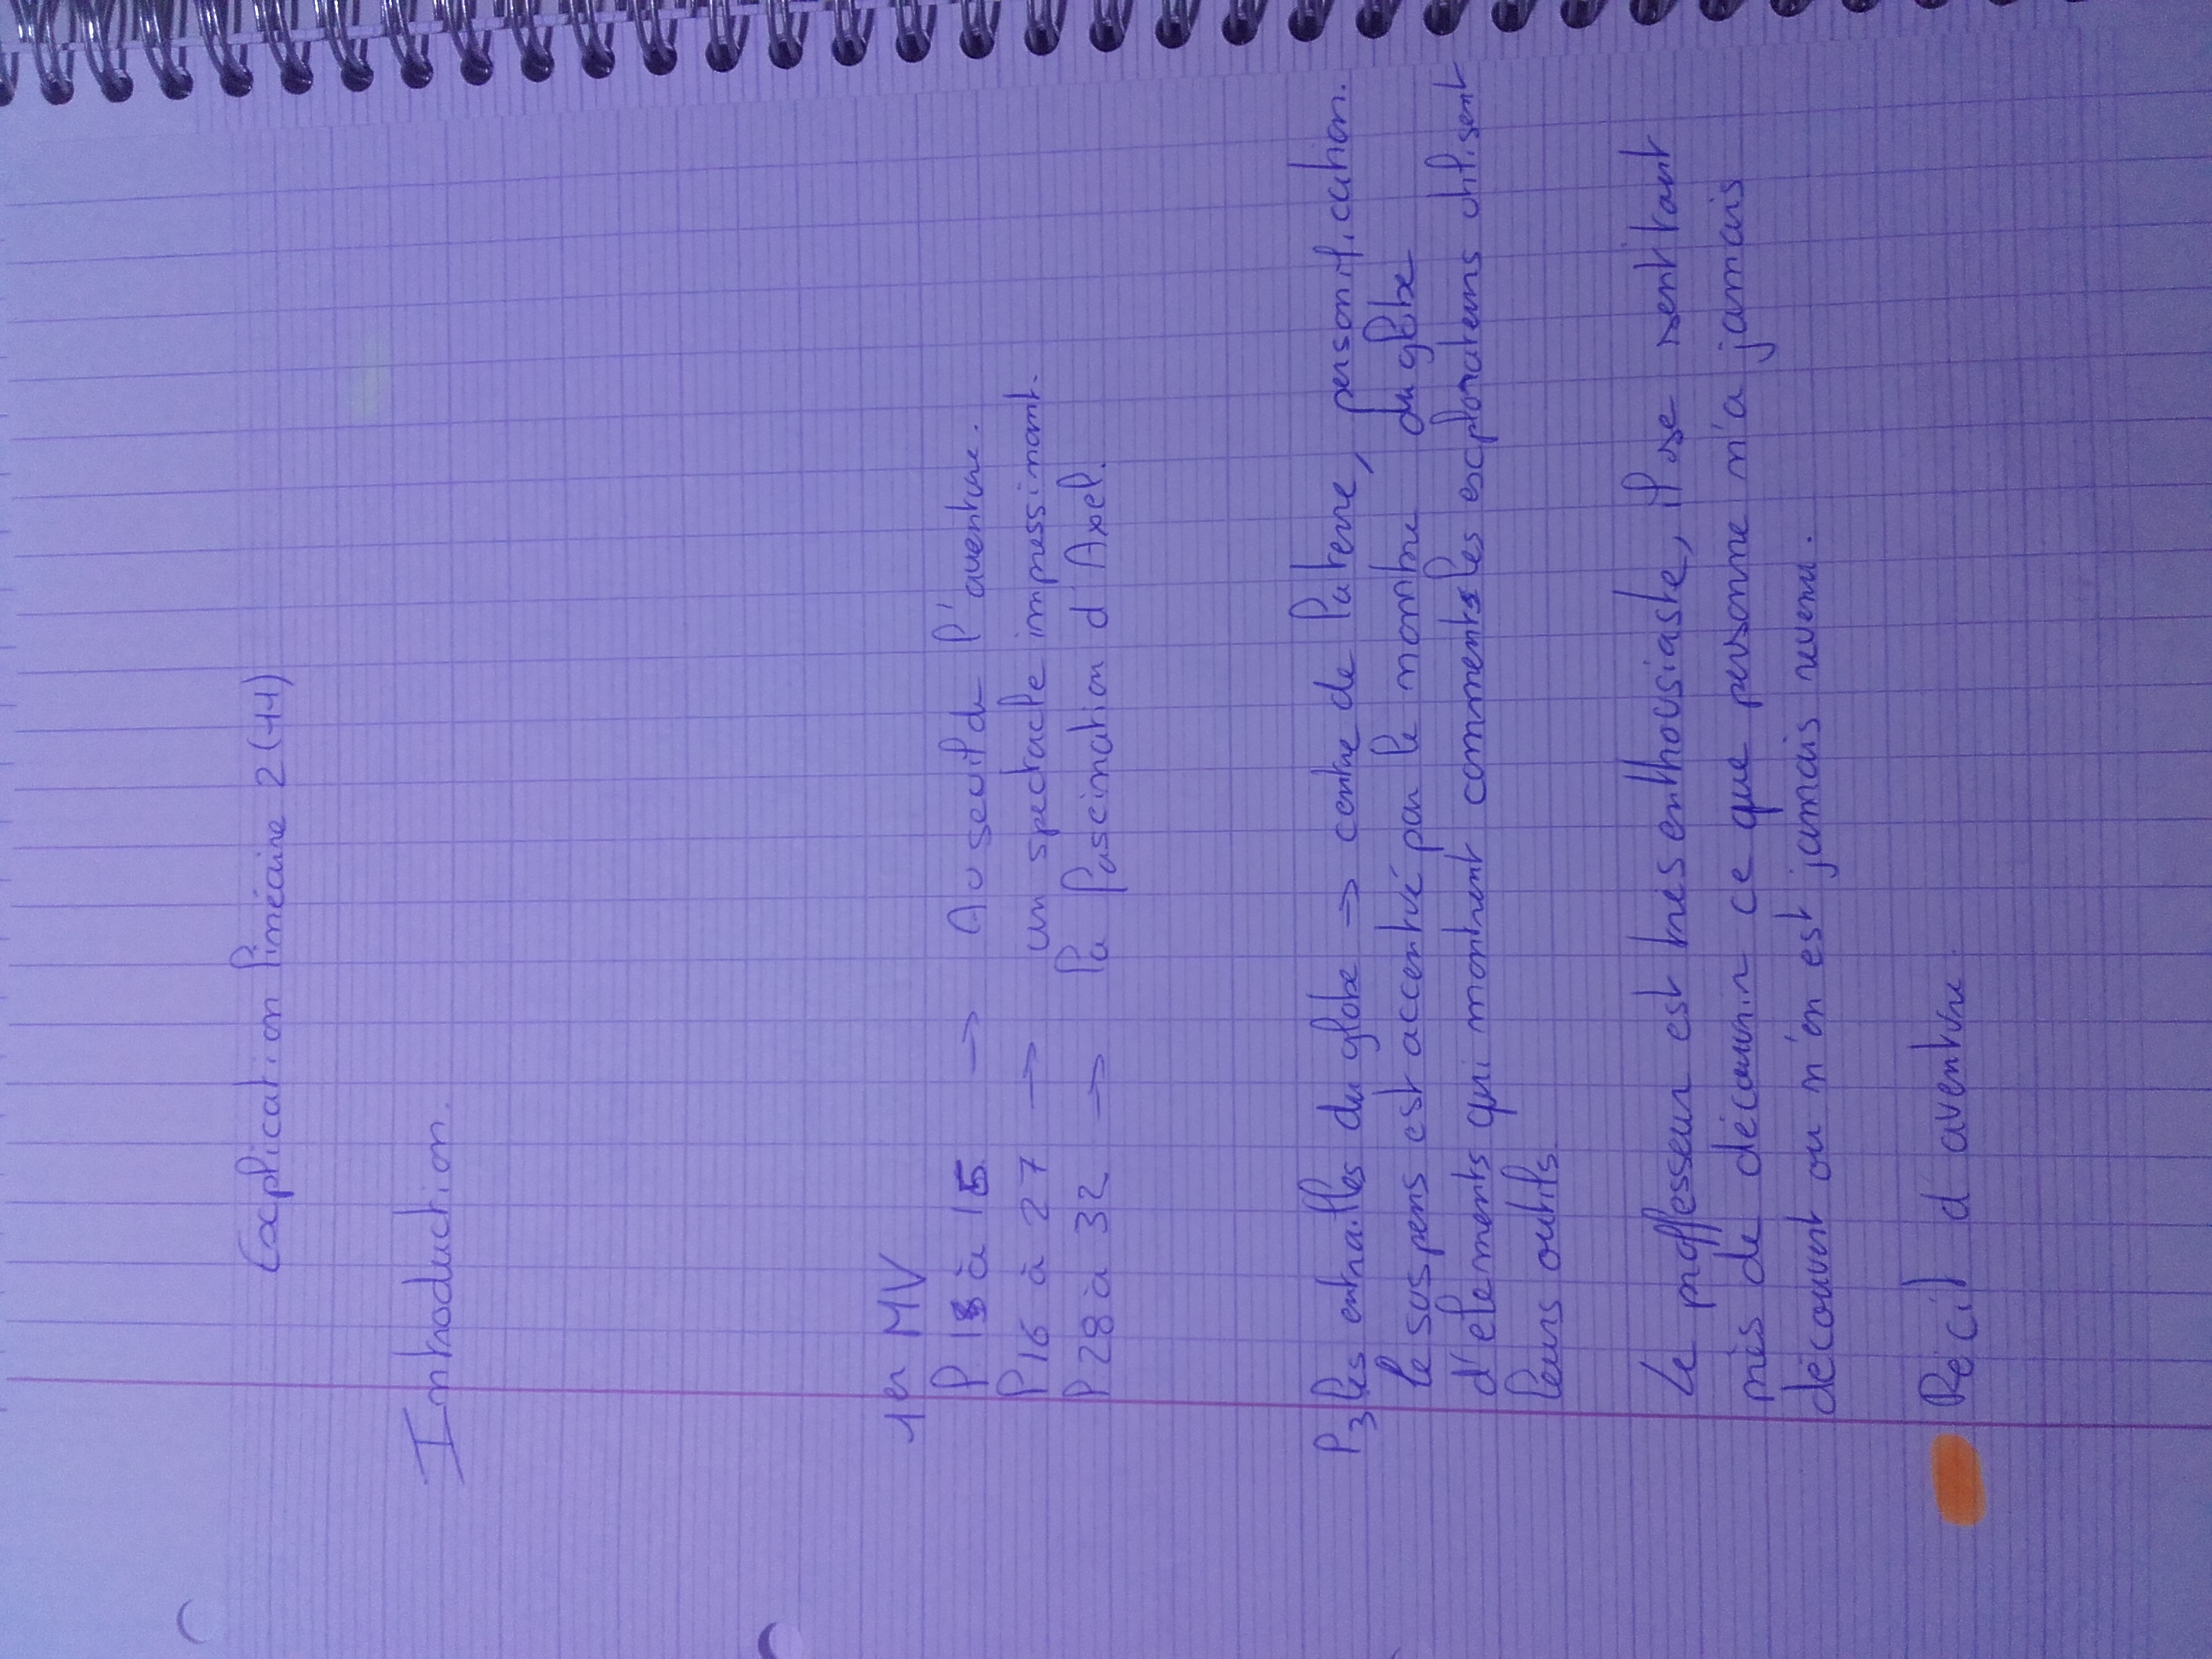 Explication linéaire 2 (11)
Introduction.
1er MV
l 13 à 15 → Au seuil de l'aventure.
l 16 à 27 → un spectacle impressinant.
l 28 à 32 → la fascination d'Axel.
l 3 les entrailles du globe → centre de la terre, personification.
le suspens est accentué par le nombre du globe
d'elements qui montrent comments les explorateurs utilisent
leurs outils
Le proffesseur est tres enthousiaste, il se sent tant
près de découvrir ce que personne n'a jamais
découvert ou n'en est jamais revenu.
Récit d'aventure